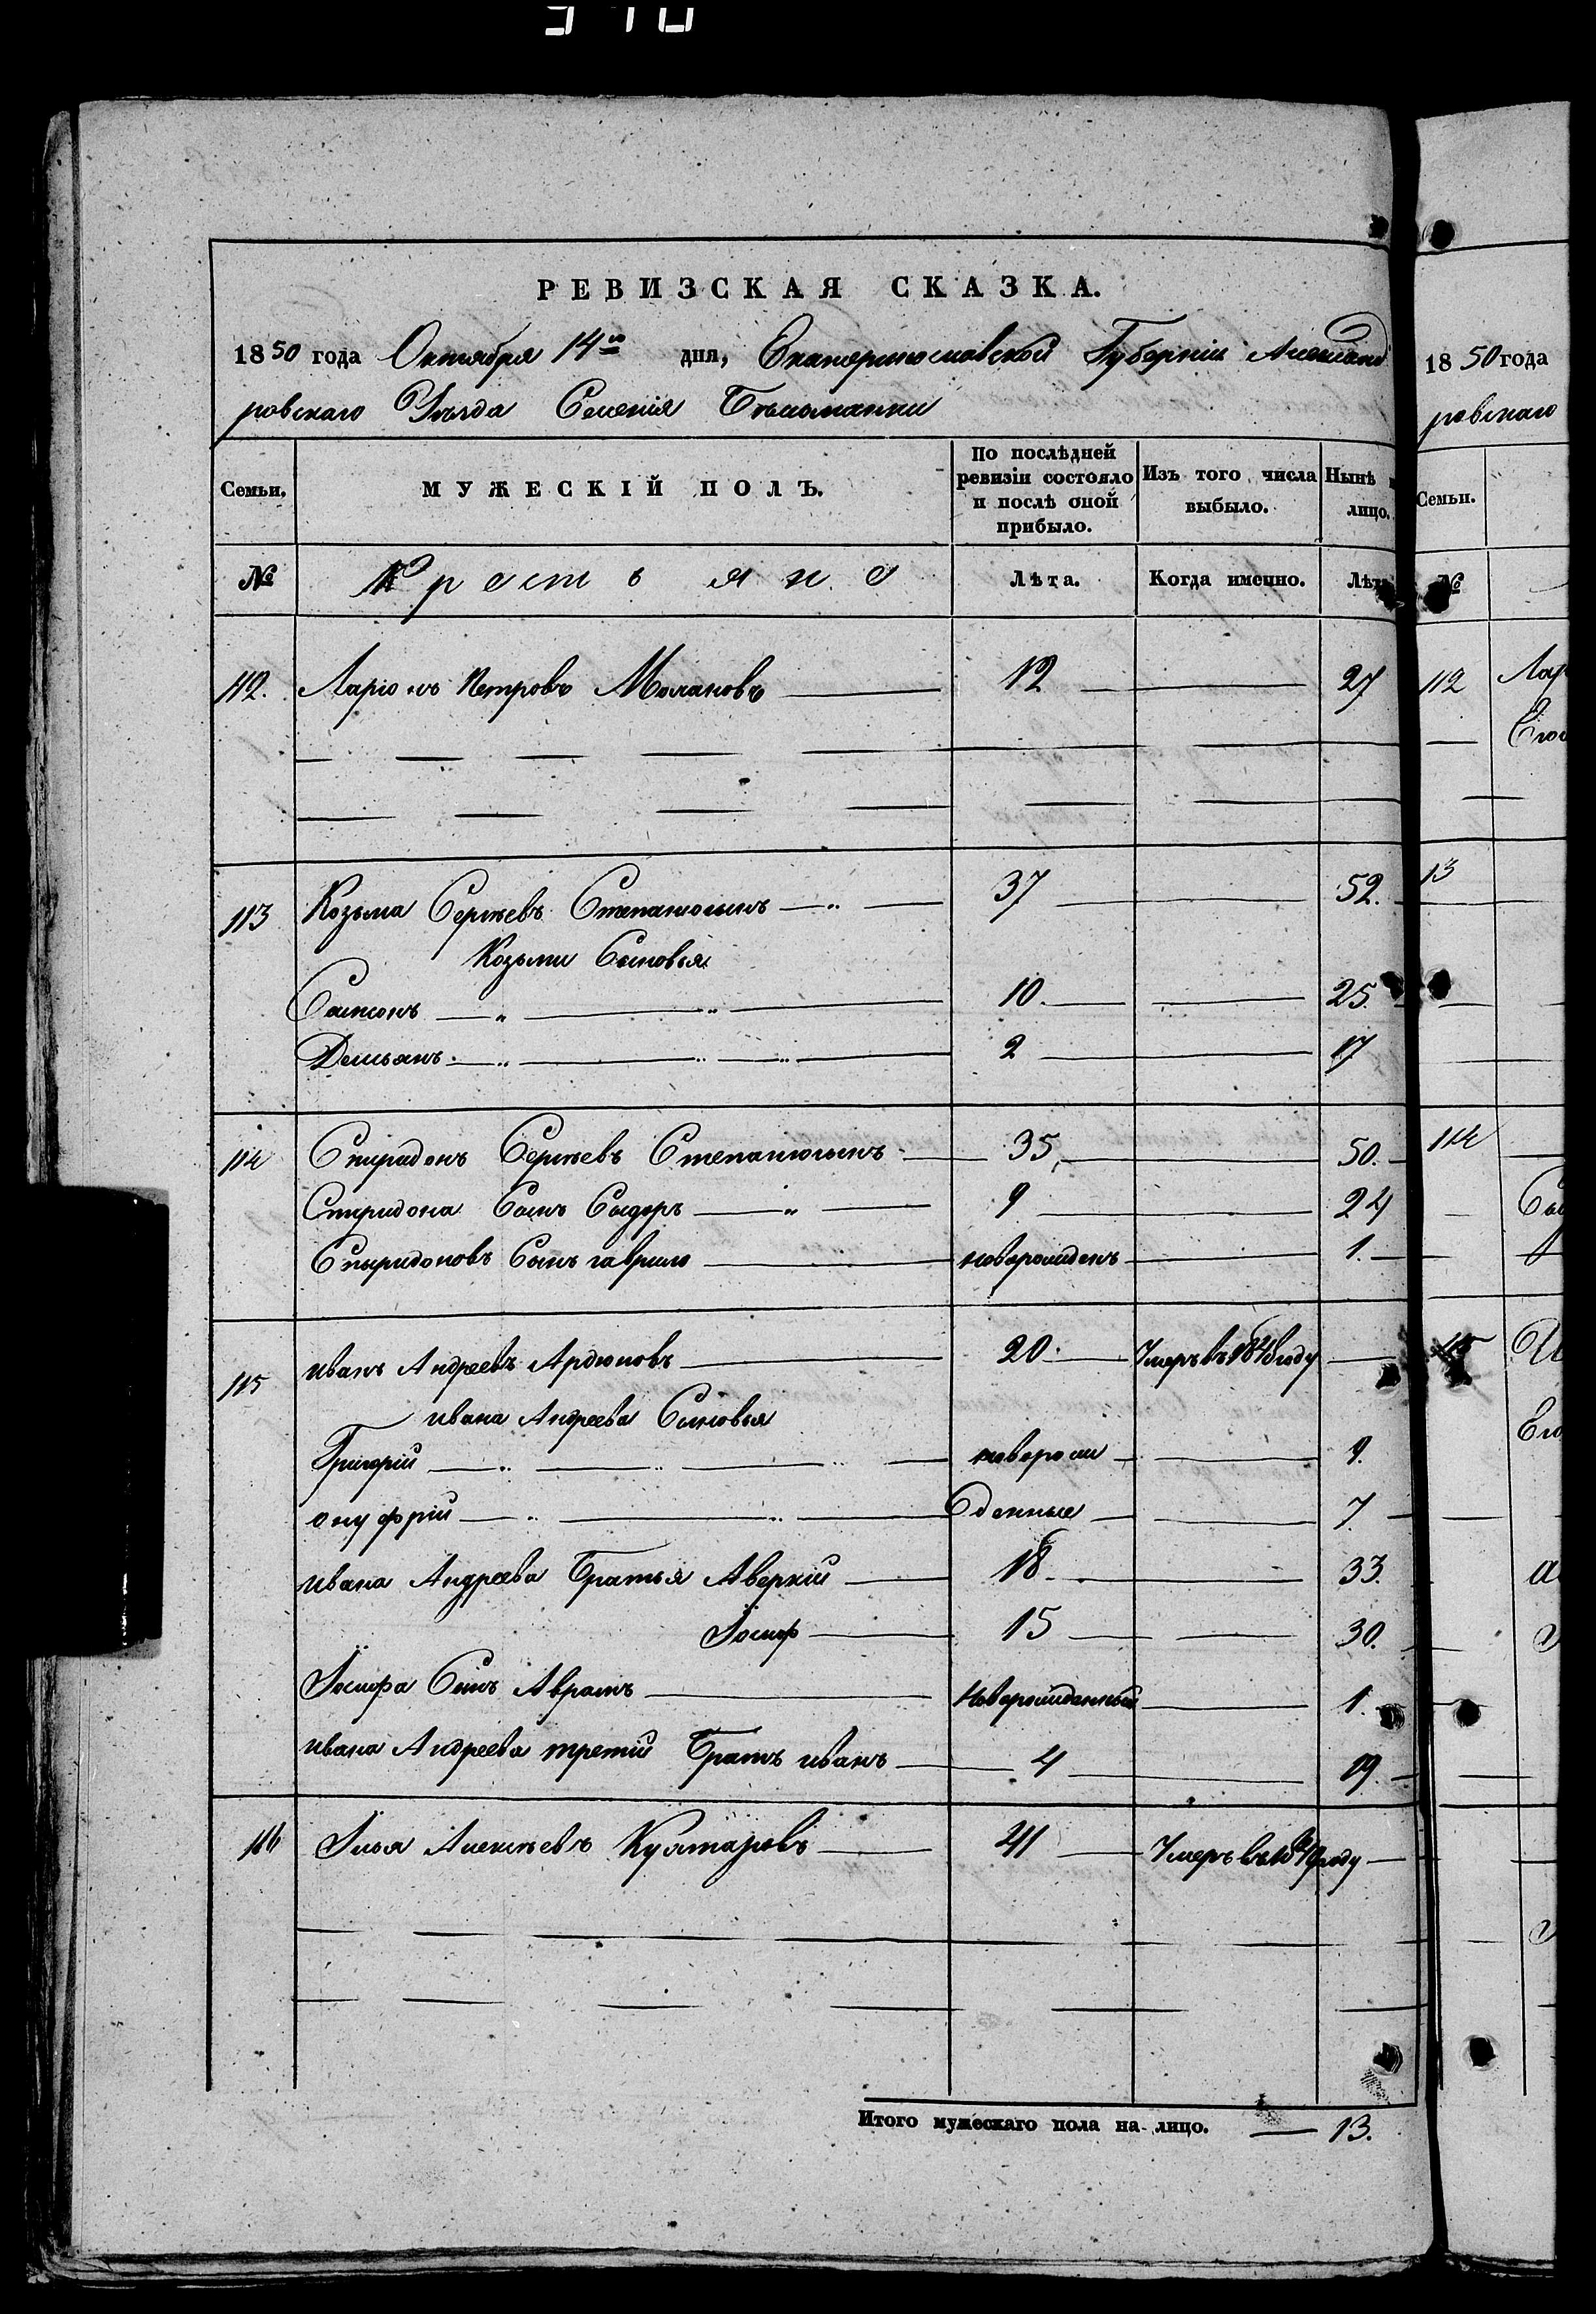 РЕВИЗСКАЯ СКАЗКА.
1850 года Октября 14го дня, Екатеринославской Губерніи Александ
ровскаго Уѣзда Селенія Бѣломанки
Семьи. МУЖЕСКІЙ ПОЛЪ. По послѣдней ревизіи состояло и послѣ оной прибыло. Изъ того числа выбыло. Нынѣ лицо.
№ Крестьяне Лѣта. Когда именно. Лѣта
112. Ларіонъ Петровъ 12 27
113 Козьма Сергѣевъ 37 52.
Козьми Сыновья
Самсонъ 10. 25.
Демьянъ. 2 17
114 Спиридонъ Сергѣевъ 35, 50.
Спиридона Сынъ Сыдоръ 9 24
Спыридоновъ Сынъ гаврило новорожденъ 1.
115 иванъ Андреевъ Ардюповъ 20. Умеръ въ году
ивана Андреева Сыновья
Григорій новорож 9.
онуфрій денные 7.
ивана Андреева Братья Аверкій 18. 33.
Іосифъ 15 30.
Іосифа Сынъ Аврамъ новорожденный 1.
ивана Андреева третій Братъ иванъ 4 19.
116 Илья Алексѣевъ 41 Умеръ въ году
Итого мужескаго пола на-лицо. 13.
1850 года
ровскаго
Семьи.
№
112 Лар
13
114
115